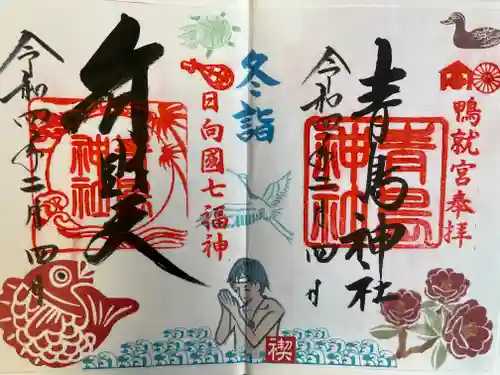 鴨就宮奉拝
青島神社
青島
神社
令和四年二月四日
冬詣
日向國七福神
弁財天
青島
神社
令和四年二月四日
禊